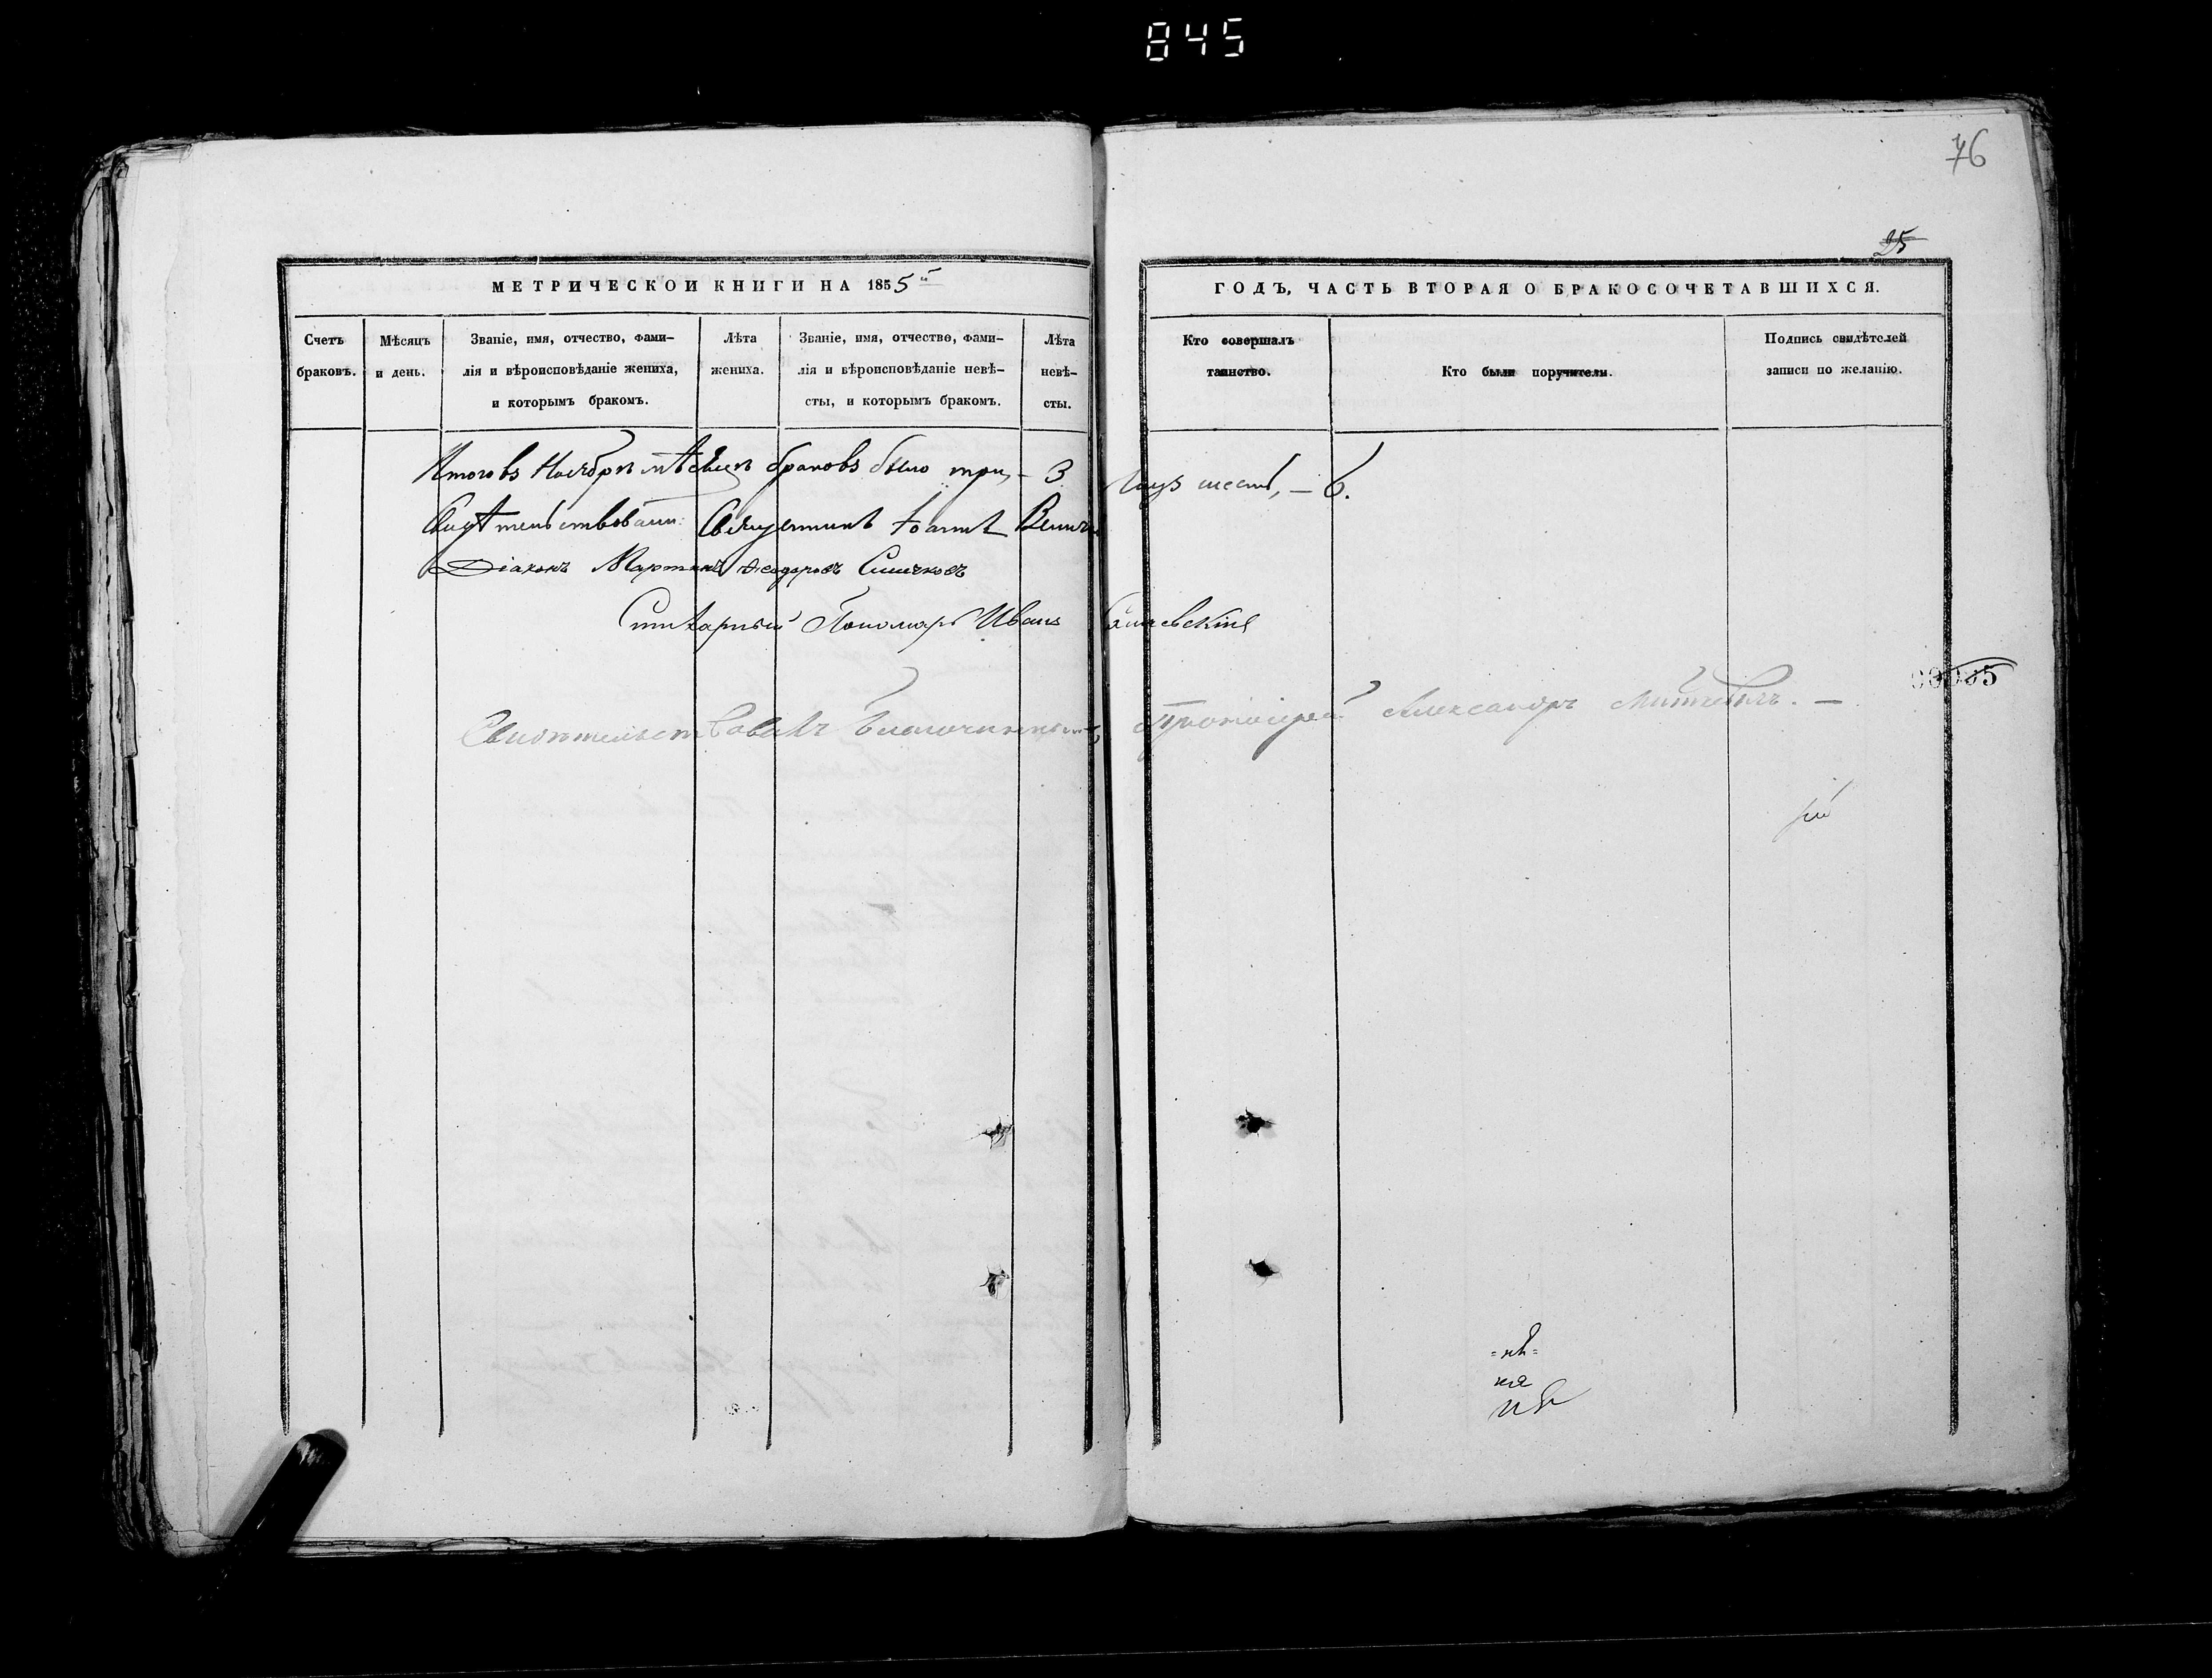 845
76
25
МЕТРИЧЕСКОЙ КНИГИ НА 1855й
ГОДЪ, ЧАСТЬ ВТОРАЯ О БРАКОСОЧЕТАВШИХСЯ.
Счетъ браковъ.
Мѣсяцъ и день.
Званіе, имя, отчество, фами-
лія и вѣроисповѣданіе жениха,
и которымъ бракомъ.
Лѣта жениха.
Званіе, имя, отчество, фами-
лія и вѣроисповѣданіе невѣ-
сты, и которымъ бракомъ.
Лѣта невѣ-
сты.
Кто совершалъ
таинство.
Кто были поручители.
Подпись свидѣтелей
записи по желанію.
Итого въ Ноябрѣ мѣсяцѣ браковъ было три, - 3 лицъ шесть, - 6.
Свидѣтельствовали: Священникъ Іоаннъ
Діаконъ Мартинъ Ѳеодоровъ
Стихарный Пономарь Иванъ
Свидѣтельствовалъ Благочинный, Протоіерей Александръ